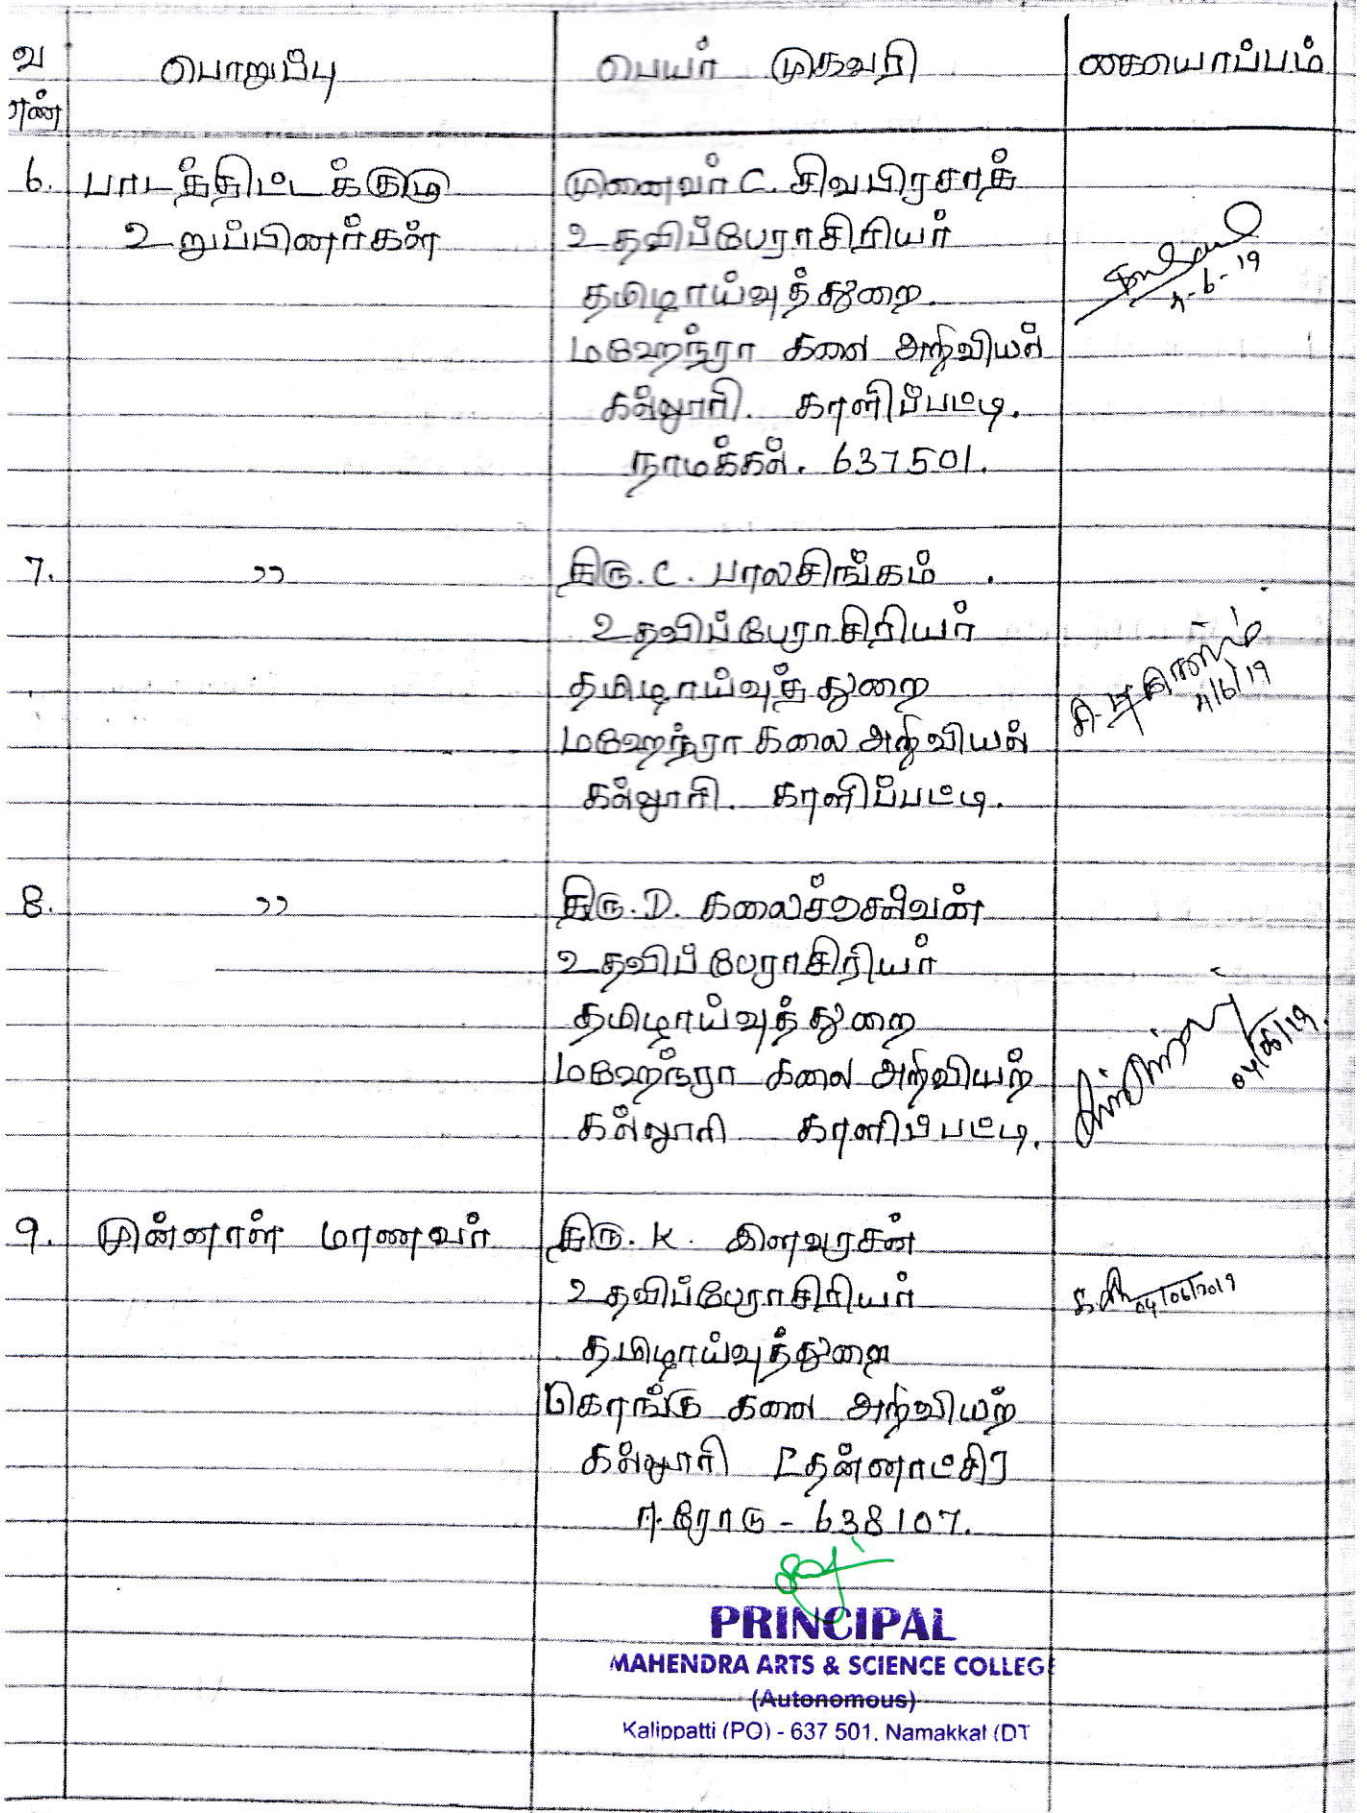 வ எண் பொறுப்பு பெயர் முகவரி கையொப்பம்
6. பாடத்திட்டக்குழு முனைவர் C. சிவபிரசாத்
உறுப்பினர்கள் உதவிப்பேராசிரியர்
தமிழாய்வுத்துறை
4-6-19
மஹேந்ரா கலை அறிவியல்
கல்லூரி. காளிப்பட்டி.
நாமக்கல். 637501.
7. " திரு. C. பாலசிங்கம்
உதவிப்பேராசிரியர்
தமிழாய்வுத்துறை
4/6/19
மஹேந்ரா கலை அறிவியல்
கல்லூரி. காளிப்பட்டி.
8. " திரு. D. கலைச்செல்வன்
உதவிப்பேராசிரியர்
தமிழாய்வுத்துறை
04/06/19
மஹேந்ரா கலை அறிவியற்
கல்லூரி காளிப்பட்டி.
9. முன்னாள் மாணவர் திரு. K. இளவரசன்
உதவிப்பேராசிரியர் 04/06/2019
தமிழாய்வுத்துறை
கொங்கு கலை அறிவியற்
கல்லூரி [தன்னாட்சி]
ஈரோடு - 638107.
PRINCIPAL
MAHENDRA ARTS & SCIENCE COLLEGE
(Autonomous)
Kalippatti (PO) - 637 501. Namakkal (DT